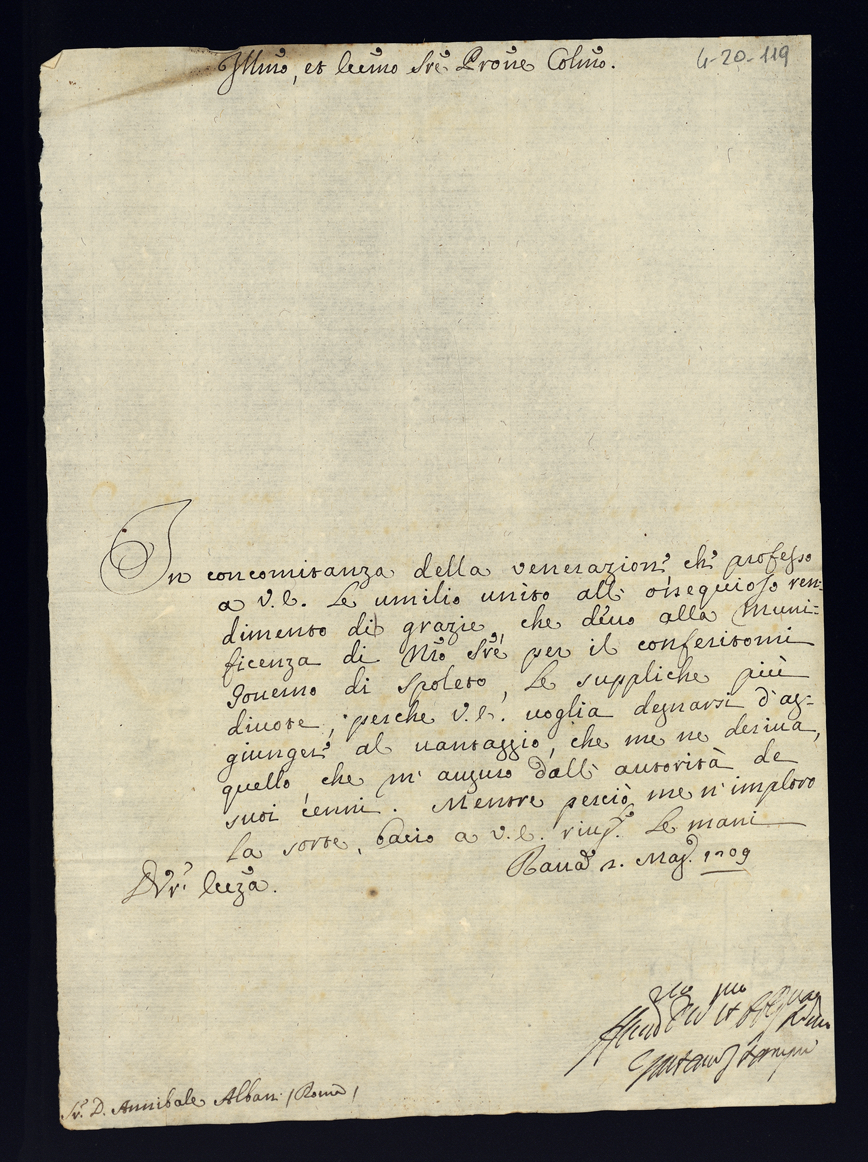 Illmo, et Eccmo Sre Prone Colmo.
4-20-119
In concomitanza della venerazione che professo
a V.E. Le umilio unito all' ossequioso ren=
dimento di grazie che devo alla muni=
ficenza di Nro Sre per il conferitomi
Governo di Spoleto, Le suppliche più
divote, perche V.E. voglia degnarsi d'ag=
giunger al vantaggio, che me ne deriva,
quello che m'auguro dall' autorità de
suoi cenni. Mentre perciò me n'imploro
la sorte, bacio a V.E. rive. Le mani
D V. Ecca.
Mag. 1709
Sr. D. Annibale Albani (Roma)